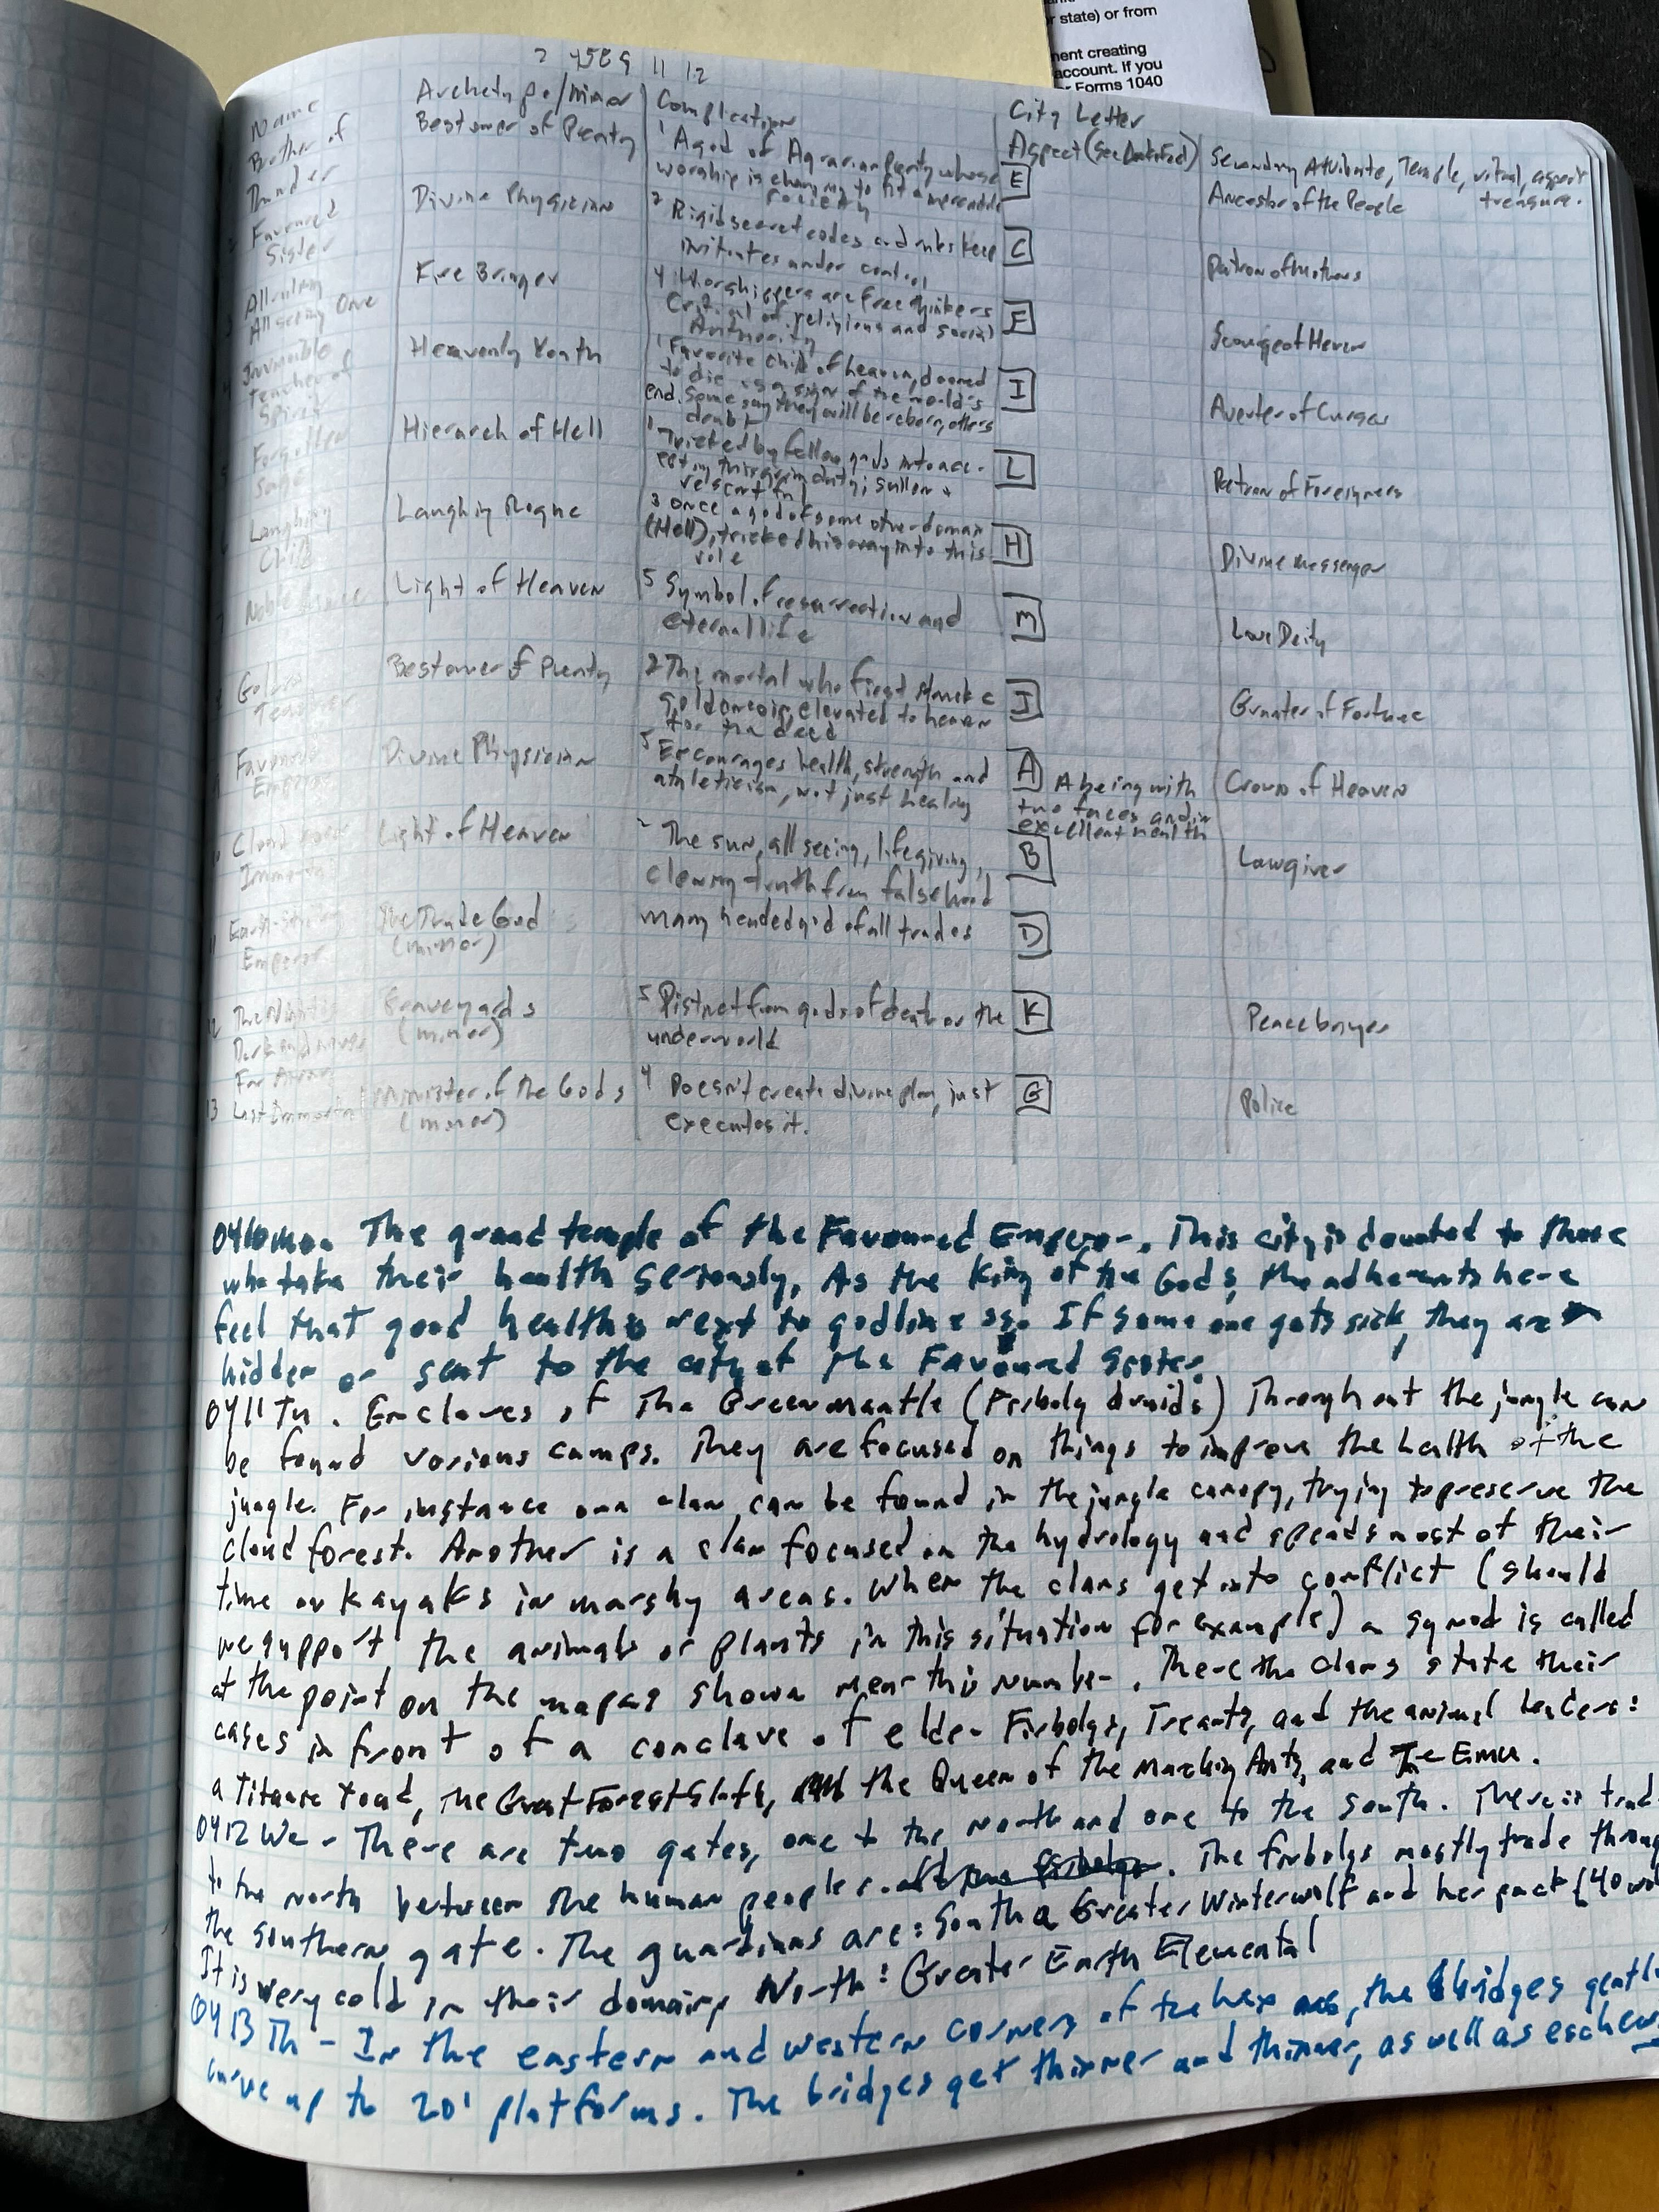 r state) or from
ment creating
account. If you
r Forms 1040
Name
Archetype/minor
Complication
City Letter
Aspect (see
Secondary Attribute, Temple, ritual, aspect
treasure.
1 Brother of
Thunder
Bestower of Plenty
1 A god of Agrarian Plenty whose
worship is changing to fit a mercantile
society
E
Ancestor of the People
2 Favoured
Sister
Divine Physician
2 Rigid secret codes and rules keep
initiates under control
C
Patron of Mothers
3
All seeing One
Fire Bringer
4 Worshippers are free thinkers
Critical of religious and social
Authority
F
Scourge of Heaven
4 Invincible
Teacher of
Spirit
Heavenly Youth
1 Favorite child of heaven, doomed
to die as a sign of the world's
end. Some say they will be reborn, others
doubt
I
Averter of Curses
5 Forgotten
Sage
Hierarch of Hell
1 Tricked by fellow gods into acc-
epting this grim duty; sullen &
resentful
L
Patron of Foreigners
6 Laughing
Child
Laughing Rogue
3 Once a god of some other domain
(Hell), tricked his way into this
role
H
Divine messenger
7 Noble
Light of Heaven
5 Symbol of resurrection and
eternal life
M
Love Deity
8 Golden
Teacher
Bestower of Plenty
2 The mortal who first struck a
gold coin, elevated to heaven
for the deed
J
Granter of Fortune
9 Favoured
Emperor
Divine Physician
5 Encourages health, strength and
athleticism, not just healing
A
A being with
two faces and in
excellent health
Crown of Heaven
10 Cloud
Immortal
Light of Heaven
2 The sun, all seeing, lifegiving,
clearing truth from falsehood
B
Lawgiver
11
Emperor
The Trade God
(minor)
many headed god of all trades
D
12
Graveyards
(minor)
5 Distinct from gods of death or the
underworld
K
Peacebringer
13 Last Immortal
Minister of the Gods
(minor)
4 Doesn't create divine plan, just
executes it.
G
Police
0410 Mo. The grand temple of the Favoured Emperor. This city is devoted to those
who take their health seriously, As the King of the Gods, the adherents here
feel that good health is next to godliness. If some one gets sick, they are
hidden or sent to the city of the Favoured Sister.
0411 Tu. Enclaves of The Greenmantle (Firbolg druids) Throughout the jungle can
be found various camps. They are focused on things to improve the health of the
jungle. For instance one clan can be found in the jungle canopy, trying to preserve the
cloud forest. Another is a clan focused on the hydrology and spends most of their
time on kayaks in marshy areas. When the clans get into conflict (should
we support the animals or plants in this situation for example) a synod is called
at the point on the map as shown near this number. There the clans state their
cases in front of a conclave of elder Firbolgs, Treants, and the animal leaders:
a Titanic toad, The Great Forest Sloth, the Queen of the Marching Ants, and The Emu.
0412 We - There are two gates, one to the north and one to the south. There is trade
to the north between the human peoples. The firbolgs mostly trade through
the southern gate. The guardians are: South a Greater Winterwolf and her pack (40
It is very cold in their domain, North: Greater Earth Elemental
0413 Th - In the eastern and western corners of the hex, the bridges gently
curve up to 20' platforms. The bridges get thinner and thinner, as well as